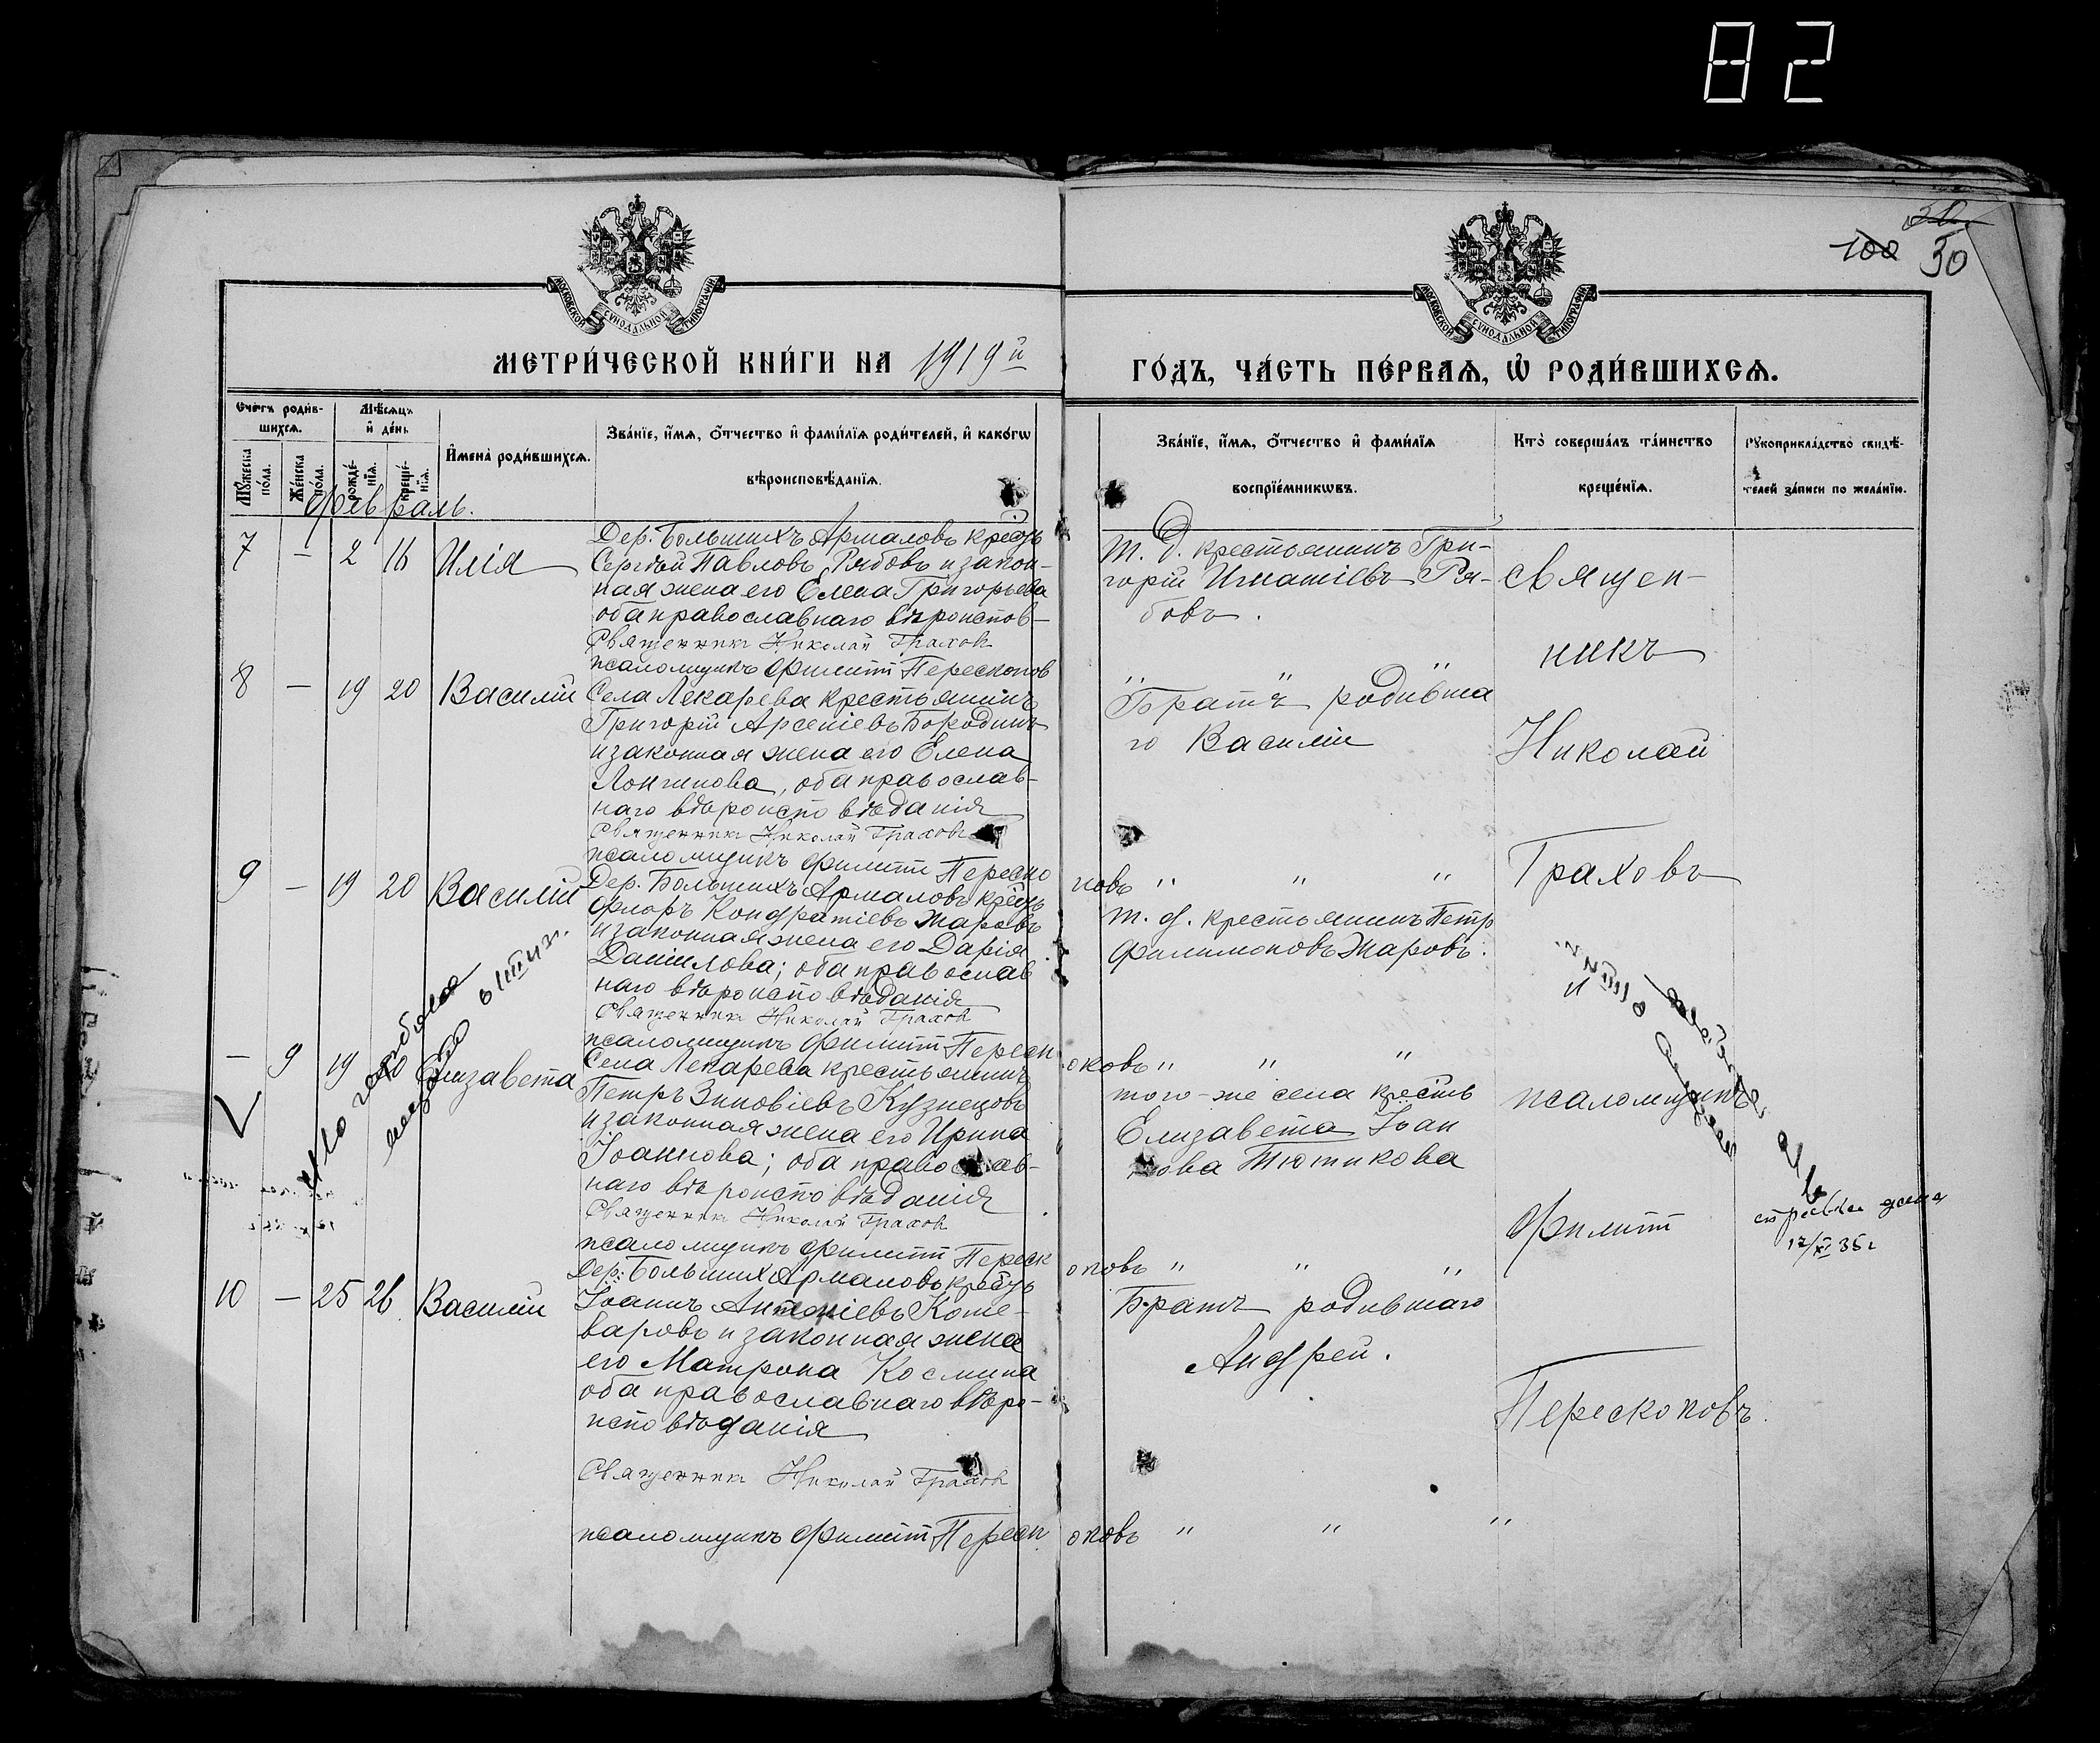 82
100 50
МОСКОВСКОЙ СѴНОДАЛЬНОЙ ТИПОГРАФІИ
МОСКОВСКОЙ СѴНОДАЛЬНОЙ ТИПОГРАФІИ
МЕТРИ́ЧЕСКОЙ КНИ́ГИ НА 1919й
ГО́ДЪ, ЧА́СТЬ ПЕ́РВАѦ, Ѡ҆ РОДИ́ВШИХСѦ.
Сче́тъ роди́в-
шихсѧ.
Мꙋ́жеска по́ла.
Же́нска по́ла.
Мѣ́сѧцъ и҆ де́нь.
рожде́-
нїѧ.
креще́-
нїѧ.
И҆мена̀ роди́вшихсѧ.
Зва́нїе, и҆́мѧ, ѻ҆́тчество и҆ фами́лїѧ роди́телей, и҆ како́гѡ
вѣроисповѣ́данїѧ.
Зва́нїе, и҆́мѧ, ѻ҆́тчество и҆ фами́лїѧ
воспрїе́мникѡвъ.
Кто̀ соверша́лъ та́инство
креще́нїѧ.
Рꙋкоприкла́дство свидѣ́-
телей за́писи по жела́нїю.
Февраль.
7 – 2 16 Илія
Дер. Большихъ Армаловъ крест-нъ
Сергѣй Павловъ Рябовъ и закон-
ная жена его Елена Григорьева
оба православнаго вѣроиспов-
Священникъ Николай Граховъ
псаломщикъ Филиппъ Перескоков
Т. д. крестьянинъ Гри-
горій Игнатіевъ Ря-
бовъ.
" " "
8 – 19 20 Василій
Села Лекарева крестьянинъ
Григорій Арсеніевъ Бородинъ
и законная жена его Елена
Лонгинова, оба православ-
наго вѣроисповѣданія
Священникъ Николай Граховъ
псаломщикъ Филиппъ Переско
ковъ " " "
Братъ родивша
го Василій
9 – 19 20 Василій
Дер. Большихъ Армаловъ крест-нъ
Флоръ Кондратіевъ Жаровъ
и законная жена его Дарія
Данилова; оба православ
наго вѣроисповѣданія
Священникъ Николай Граховъ
псаломщикъ Филиппъ Переск
оковъ " " "
т. д. крестьянинъ Петр
Филимоновъ Жаровъ.
– 9 19 20 Елизавета
Села Лекарева крестьянинъ
Петръ Зиновіевъ Кузнецовъ
и законная жена его Ирина
Іоаннова; оба православ-
наго вѣроисповѣданія
Священникъ Николай Граховъ
псаломщикъ Филиппъ Переск
оковъ " " "
того-же села кресть
Елизавета Іоан
нова Тютикова
справка дана
17/XI 35 г
10 – 25 26 Василій
Дер. Большихъ Армаловъ крест-нъ
Іоаннъ Антоніевъ Коше-
варовъ и законная жена
его Матрона Космина
оба православнаго вѣро-
исповѣданія
Священникъ Николай Граховъ
псаломщикъ Филиппъ Переск
оковъ " " "
Братъ родившаго
Андрей.
Священ-
никъ
Николай
Граховъ
псаломщикъ
Филиппъ
Перескоковъ.